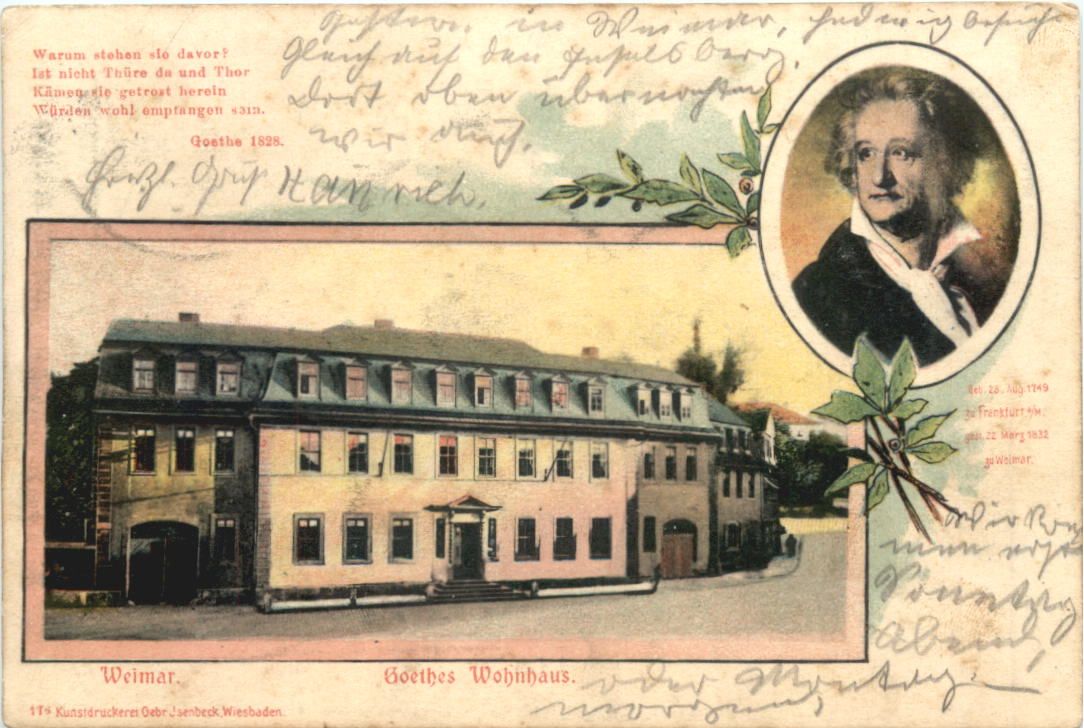 Gestern in Weimar, Hedwig besucht
Gleich auf den Inselsberg.
Dort oben übernachten
wir auch.
Herzl. Gruß Hannrich.
Warum stehen sie davor?
Ist nicht Thüre da und Thor
Kämen sie getrost herein
Würden wohl empfangen sein.
Goethe 1828.
Geb. 28. Aug. 1749
zu Frankfurt a/M.
gest. 22. März 1832
zu Weimar.
Wir kom
men erst
Sonntag
Abend,
oder Montag
morgen,
Weimar.
Goethes Wohnhaus.
174 Kunstdruckerei Gebr. Isenbeck, Wiesbaden.